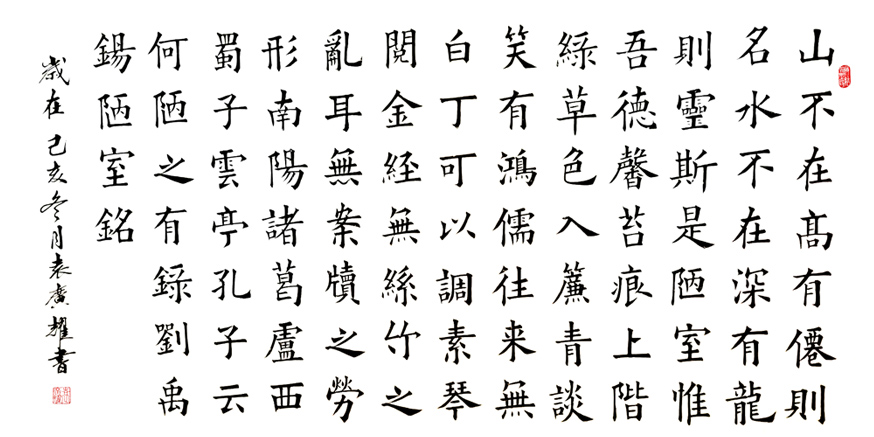 山不在髙有僊則
名水不在深有龍
則靈斯是陋室惟
吾德馨苔痕上階
緑草色入簾青談
笑有鴻儒往来無
白丁可以調素琴
閱金経無絲竹之
亂耳無案牘之勞
形南陽諸葛盧西
蜀子雲亭孔子云
何陋之有錄劉禹
錫陋室銘
歲在己亥冬月袁廣耀書